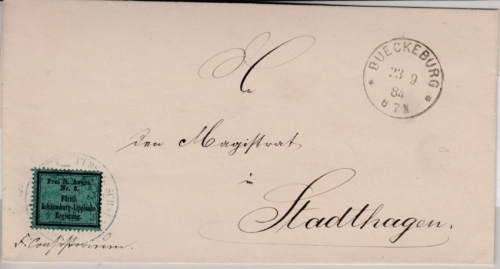 BUECKEBURG
23 9
84
6 7 N
Den Magistrat
in
Stadthagen.
Frei lt. Avers.
Nr. 6.
Fürstl.
Schaumburg-Lippische
Regierung.